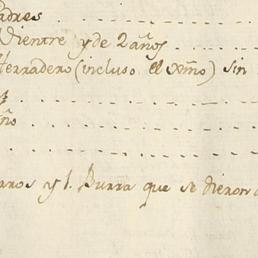 Padres
Vientre y de 2 años
Herradero (incluso el xmo) sin
ño
anos y 1. Burra que se dieron